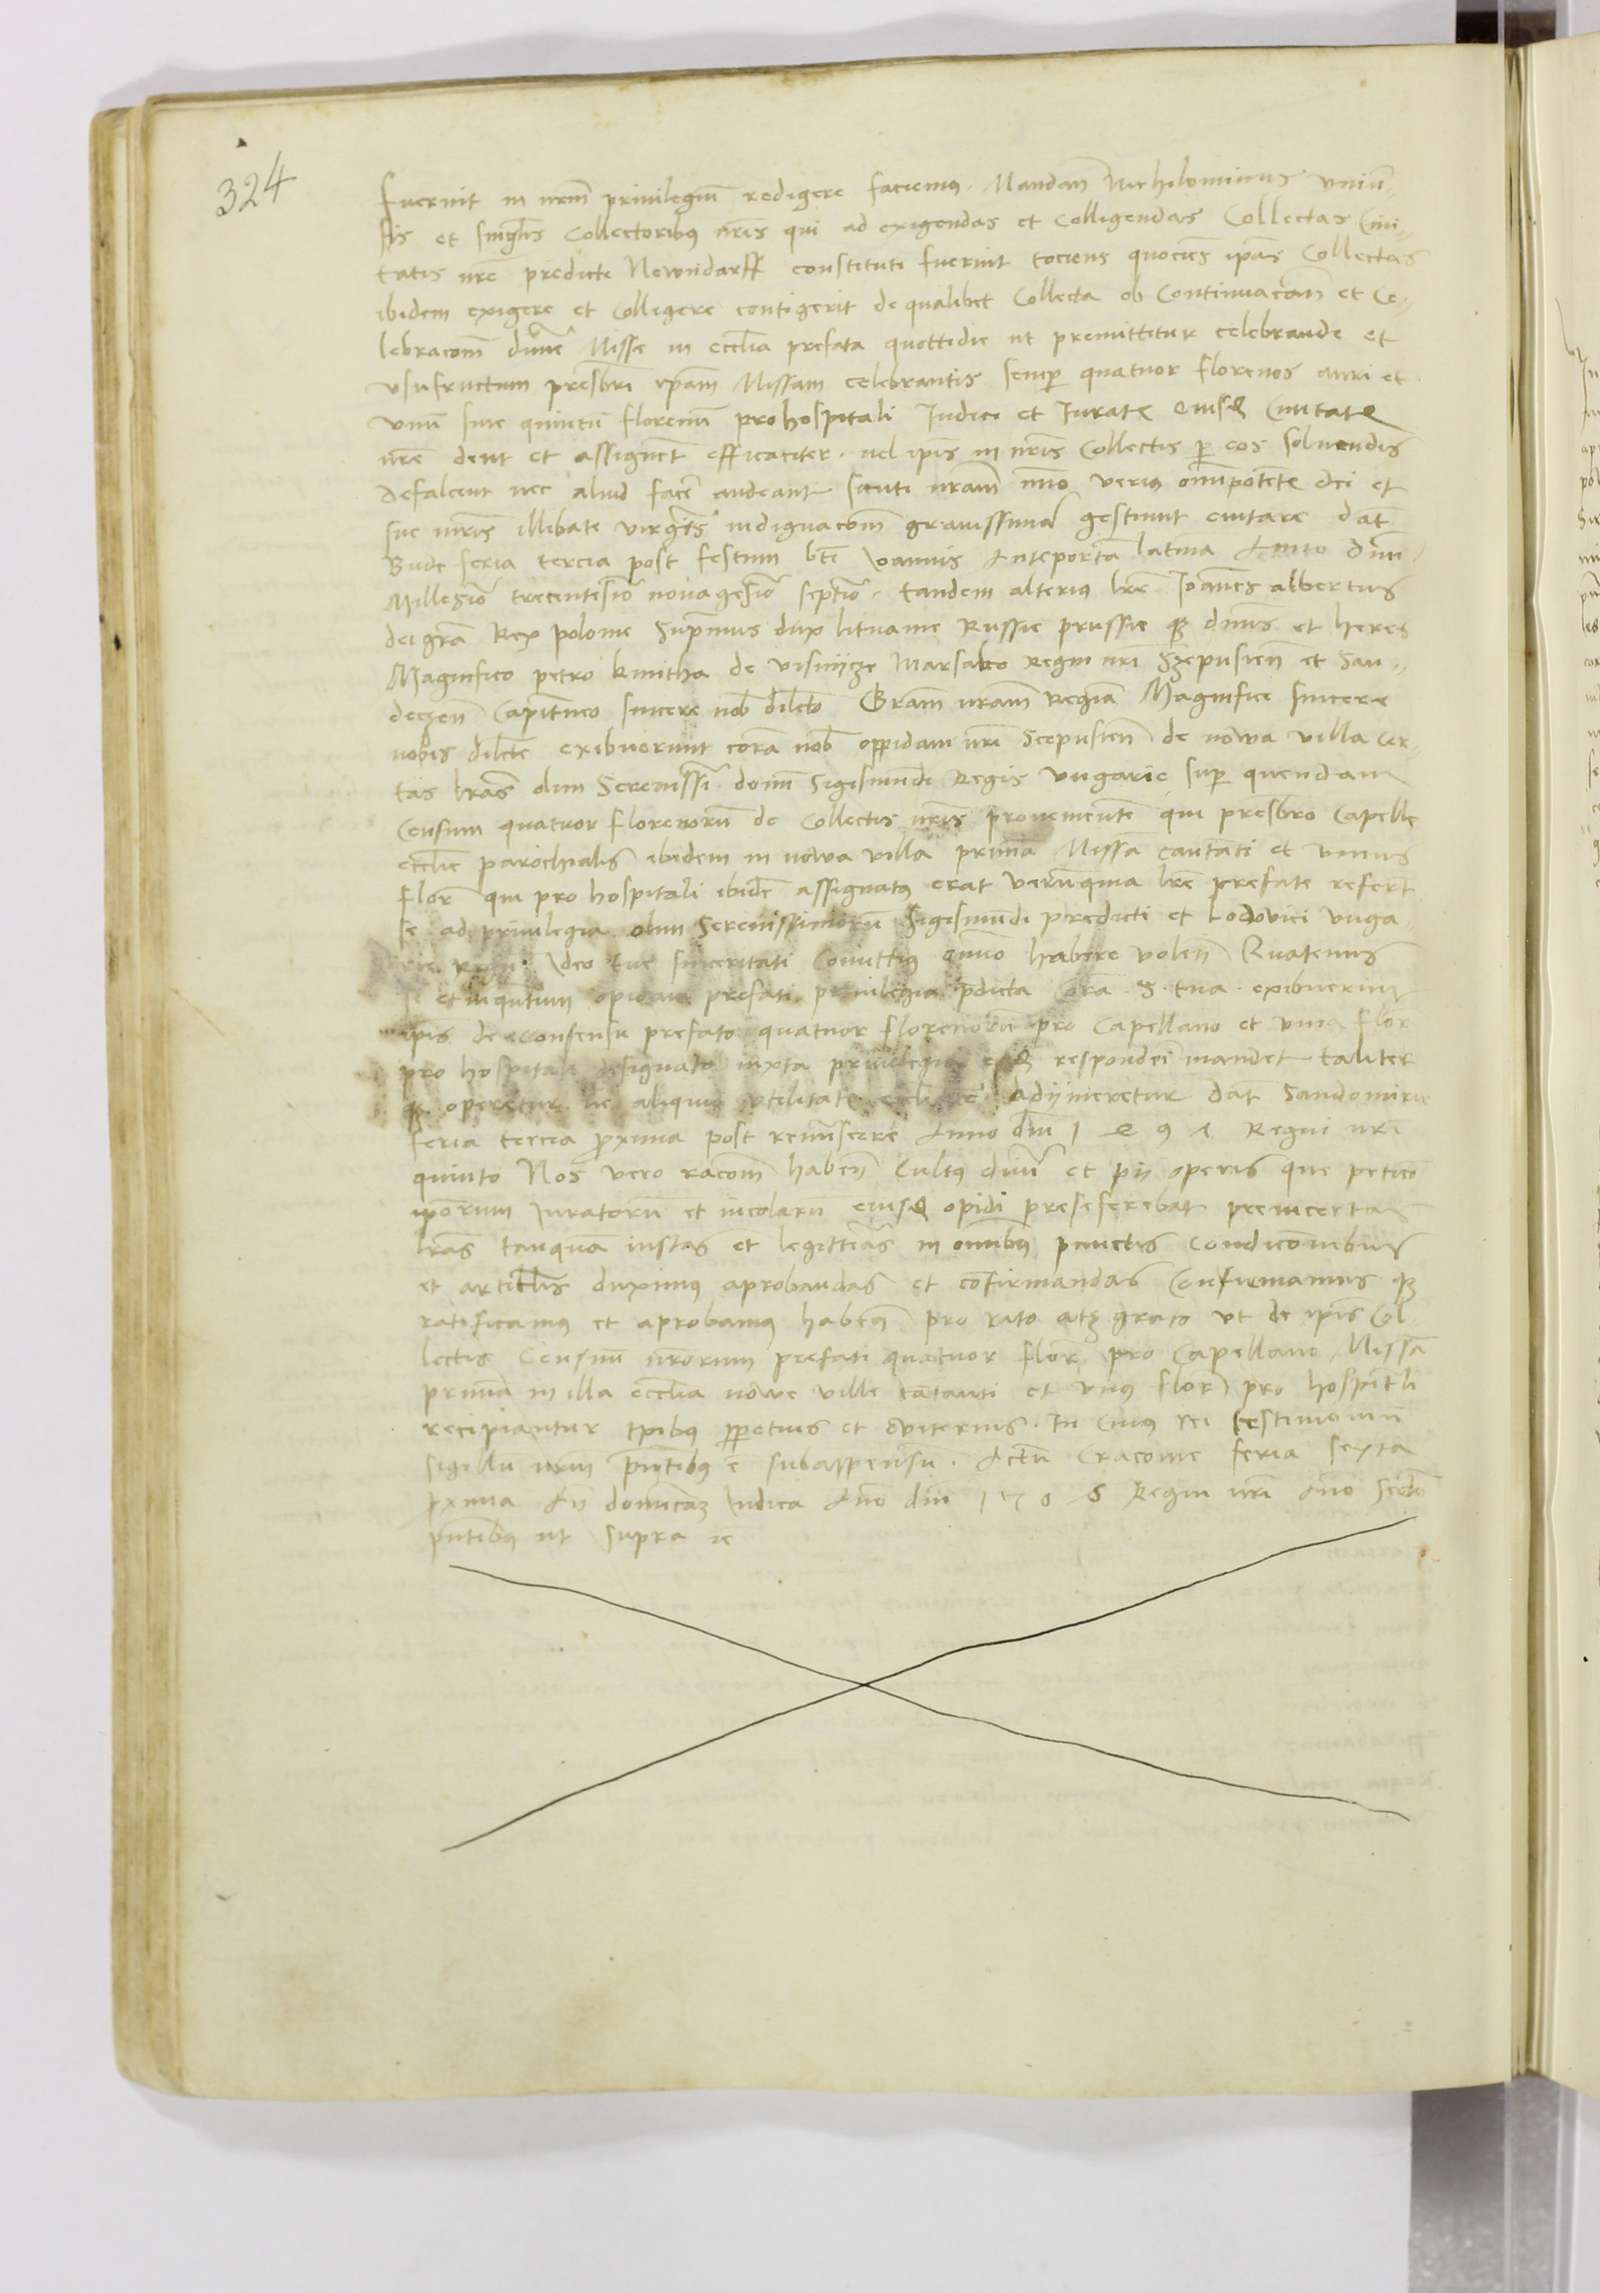 324
fuerint in nrm̃ privilegiũ redigere faciemus. Mandam̃ Nichilominus vniũ„
sis et singl̃is Collectoribus nr̃is qui ad exigendas et Colligendas Collectas Civi„
tatis nrẽ predicte Newndarff constituti fuerint tociens quociẽs ipas̃ Collectas
ibidem exigere et Colligere contigerit de qualibet Collecta ob Continuacõm et Ce„
lebracom̃ divinẽ Misse in ecclia prefata quottidie ut premittitur celebrande et
vsufructum presbr̃i ipam̃ Missam celebrantis semp̱ quatuor florenos auri et
vnũ sive quintũ florenũ pro hospitali Iudici et Iurat̃ eiusd̃ Civitat̃
nrẽ dent et assignẽt efficaciter. vel ipĩs in nr̃is Collectis p̱ eos solvendis
defalcent nec aliud facẽ audeant sicuti nram̃ ymo verius omnipotẽt̃ dei et
sue mr̃is illibate virg̃is indignacõm gravissimã gestiunt evitare dat̃
Bude feria tercia post festum btĩ Joannis Anteportã latinã Anno dnĩ
Millesiõ trecentesiõ nonagesiõ septiõ. tandem alterius lrẽ Joañes albertus
dei grã Rex polonie Supremus dux lituanie Russie prussie q̃ dñus et heres
Magnifico petro kmitha de visnijcze Marsalco Regni nrĩ Sczepusieñ et San„
deczeñ Capitaneo sincere nob̃ dilcto Gram̃ nram̃ Regiã Magnifice sincere
nobis dilcte exibuerunt corã nob̃ oppidani nrĩ Scepusieñ de nowa villa cer„
tas lras̃ olim Serenissĩ domĩ Sigismundi Regis Vngarie sup̱ quendam
Censum quatuor florenorũ de Collectis nr̃is provenientẽ qui presbro Capelle
eccliẽ parochialis ibidem in nowa villa primã Missã cantanti et vnius
flor̃ qui pro hospitali ibidẽ assignatus erat verũquia lrẽ prefate refert̃
se ad privilegia olim Serenissimorũ Sigismundi predicti et Lodovici vnga„
Ideo tue sinceritati Comittimus omnio habere voleñ Quatenus
et inquãtum opidani prefati privilegia predicta corã S. tua exibuerint
ipis̃ de Consensu prefato quatuor florenorũ pro Capellano et vno flor̃
pro hospitali assignato iuxta privilegia eisd̃ responderi mandet taliter
q̃ operetur ne aliquid vtilitatis ecclie adijmeretur dat̃ Sandomirie
feria tercia proxima post reminscere Anno dnĩ 1497 Regni nrĩ
quinto Nos vero racõm habeñ Cultus divinĩ et pij operis que peticio
ipõrum Iuratorũ et incolarũ eiusd̃ opidi preseferebat preincertas
lras̃ tanquã iustas et legittimas in omnibus punctis condicionibus
et articlis̃ duximus aprobandas et cõfirmandas Confirmamus q̃
ratificamus et aprobamus habem̃ pro rato atq̃ grato vt de ipis̃ Col„
lectis Censuũ nrõrum prefati quatuor flor̃ pro Capellano Missã
primã in illa ecclia nowe ville cantanti et vnus flor̃ pro hospitali
recipiantur tpibus p̱petuis et eviternis. In Cuius rei testimoniũ
sigillũ nrm̃ pn̄tibus ẽ subappensũ. Actũ Cracovie feria sexta
proxima Añ dominicam Iudica Anõ dnĩ 1508 Regni nrĩ Anõ scdõ
pn̄tibus ut supra ꝛc